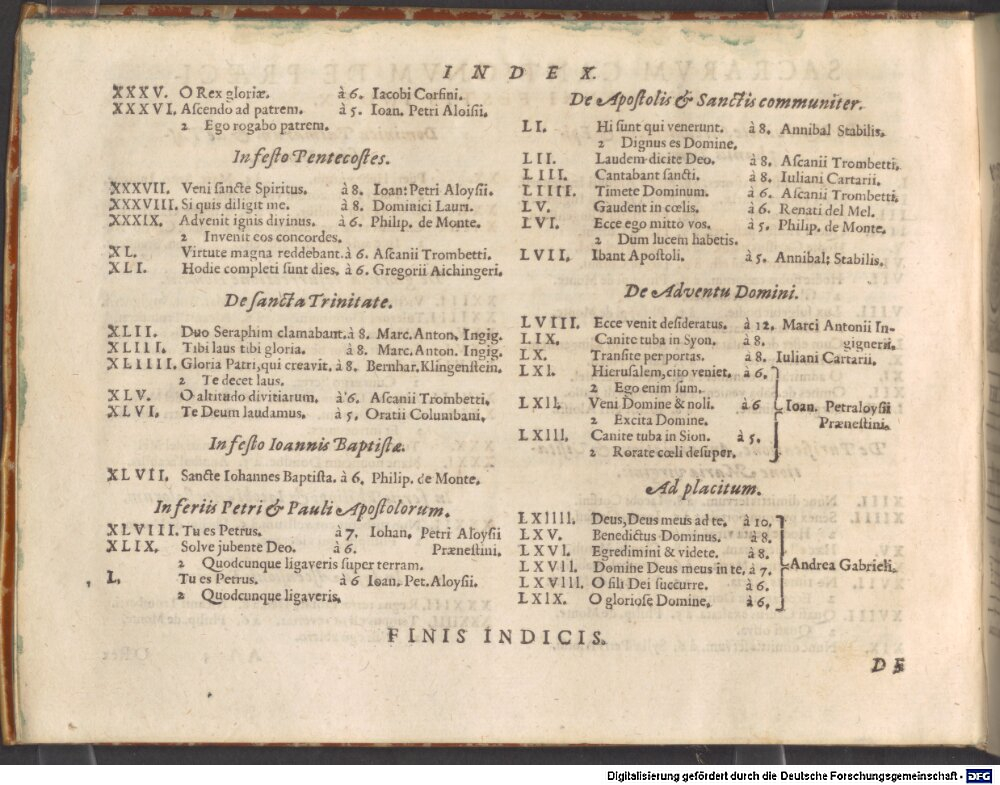 I N D E X.
XXXV. O Rex gloriæ. à 6. Iacobi Corfini.
XXXVI. Ascendo ad patrem. à 5. Ioan. Petri Aloisii.
2 Ego rogabo patrem.
In festo Pentecostes.
XXXVII. Veni sancte Spiritus. à 8. Ioan: Petri Aloysii.
XXXVIII. Si quis diligit me. à 8. Dominici Lauri.
XXXIX. Advenit ignis divinus. à 6. Philip. de Monte.
2 Invenit eos concordes.
XL. Virtute magna reddebant. à 6. Ascanii Trombetti.
XLI. Hodie completi sunt dies. à 6. Gregorii Aichingeri.
De sancta Trinitate.
XLII. Duo Seraphim clamabant. à 8. Marc. Anton. Ingig.
XLIII. Tibi laus tibi gloria. à 8. Marc. Anton. Ingig.
XLIIII. Gloria Patri, qui creavit. à 8. Bernhar. Klingenstein.
2 Te decet laus.
XLV. O altitudo divitiarum. à 6. Ascanii Trombetti.
XLVI. Te Deum laudamus. à 5. Oratii Columbani.
In festo Ioannis Baptistæ.
XLVII. Sancte Iohannes Baptista. à 6. Philip. de Monte.
In feriis Petri & Pauli Apostolorum.
XLVIII. Tu es Petrus. à 7. Iohan. Petri Aloysii
XLIX. Solve jubente Deo. à 6. Prænestini.
2 Quodcunque ligaveris super terram.
L. Tu es Petrus. à 6 Ioan. Pet. Aloysii.
2 Quodcunque ligaveris.
De Apostolis & Sanctis communiter.
LI. Hi sunt qui venerunt. à 8. Annibal Stabilis.
2 Dignus es Domine.
LII. Laudem dicite Deo. à 8. Ascanii Trombetti.
LIII. Cantabant sancti. à 8. Iuliani Cartarii.
LIIII. Timete Dominum. à 6. Ascanii Trombetti.
LV. Gaudent in cœlis. à 6. Renati del Mel.
LVI. Ecce ego mitto vos. à 5. Philip. de Monte.
2 Dum lucem habetis.
LVII. Ibant Apostoli. à 5. Annibal: Stabilis.
De Adventu Domini.
LVIII. Ecce venit desideratus. à 12. Marci Antonii In-
LIX. Canite tuba in Syon. à 8. gignerii.
LX. Transite per portas. à 8. Iuliani Cartarii.
LXI. Hierusalem, cito veniet. à 6.
2 Ego enim sum.
LXII. Veni Domine & noli. à 6 Ioan. Petraloysii
2 Excita Domine. Prænestini.
LXIII. Canite tuba in Sion. à 5.
2 Rorate cœli desuper.
Ad placitum.
LXIIII. Deus, Deus meus ad te. à 10.
LXV. Benedictus Dominus. à 8.
LXVI. Egredimini & videte. à 8.
LXVII. Domine Deus meus in te. à 7. Andrea Gabrieli.
LXVIII. O fili Dei succurre. à 6.
LXIX. O gloriose Domine. à 6.
FINIS INDICIS.
DE
Digitalisierung gefördert durch die Deutsche Forschungsgemeinschaft - DFG